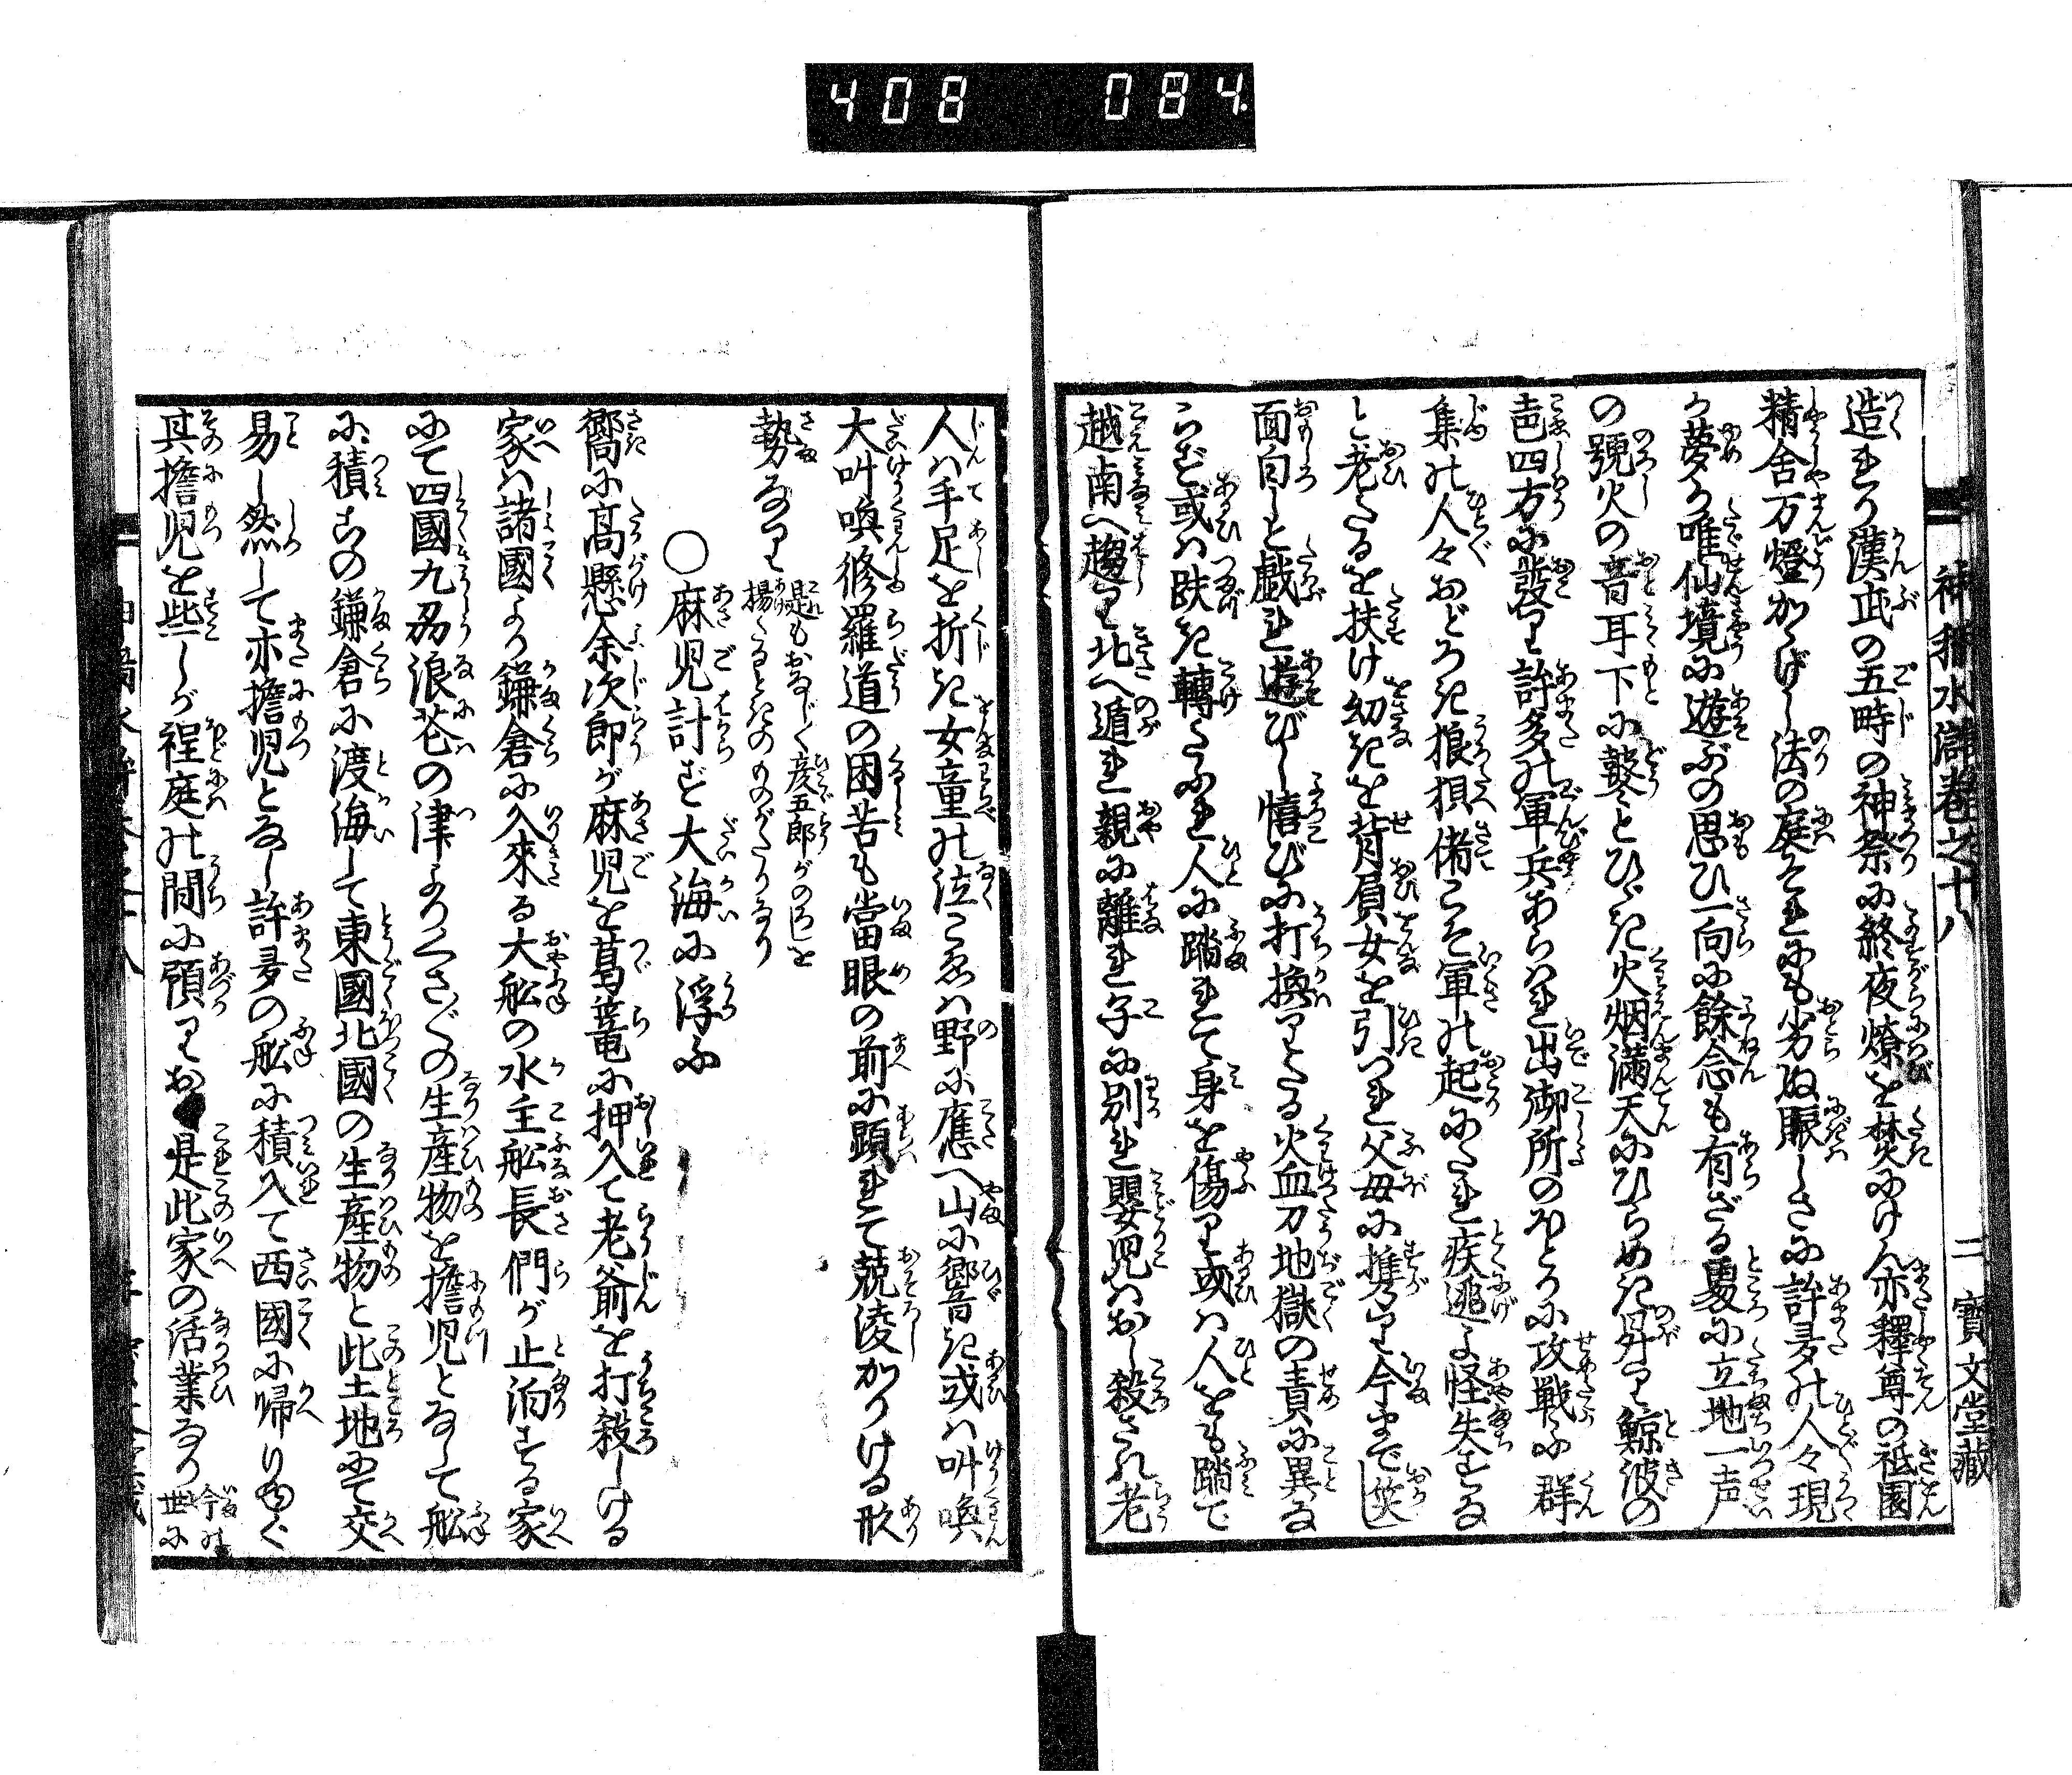 408 084
神稲水滸傳巻之十八 二 寳文堂藏
造れり漢武の五時の神祭に終夜燎を焚にけん亦釋尊の祗園
精舍万燈かゝげし法の庭それにも劣ぬ賑しさに許多の人々現
か夢か唯仙境に遊ぶの思ひ一向に餘念も有ざる處に立地一声
の號火の音耳下に鼕とひゞき火烟滿天にひらめき舛り鯨波の
声四方に發り許多の軍兵あらはれ出御所のほとりに攻戰ふ群
集の人々おどろき狼狽偖こそ軍の起にたれ疾逃よ怪失するな
と老たるを扶け幼きを背負女を引つれ父母に携り今まで笑
面白しと戯れ遊びし僖びに打換りたる火血刀地獄の責に異な
らず或ハ趺き轉たふれ人に踏れて身を傷り或ハ人をも踏で
越南へ趨り北へ遁れ親に離れ子に別れ嬰児ハおし殺され老
人ハ手足を折き女童の泣こゑハ野に應へ山に響き或ハ叫喚
大叫喚修羅道の困苦も當眼の前に顕れて兢凌かりける形
勢なり
是もおなじく彦五郎がのろしを
揚たるときのものがたりなり
〇麻児計ず大海に浮ふ
嚮に高懸余次郎が麻児を葛篭に押入て老爺を打殺しける
家ハ諸國より鎌倉に入來る大舩の水主舩長們が止泊する家
にて四國九刕浪花の津よりくさ〴〵の生産物を擔児となして舩
に積この鎌倉に渡海して東國北國の生産物と此土地にて交
易し然して亦擔児となし許多の舩に積入て西國に歸りゆく
其擔児を些しが裎庭の間に預りお 是此家の活業なり
今の
世に